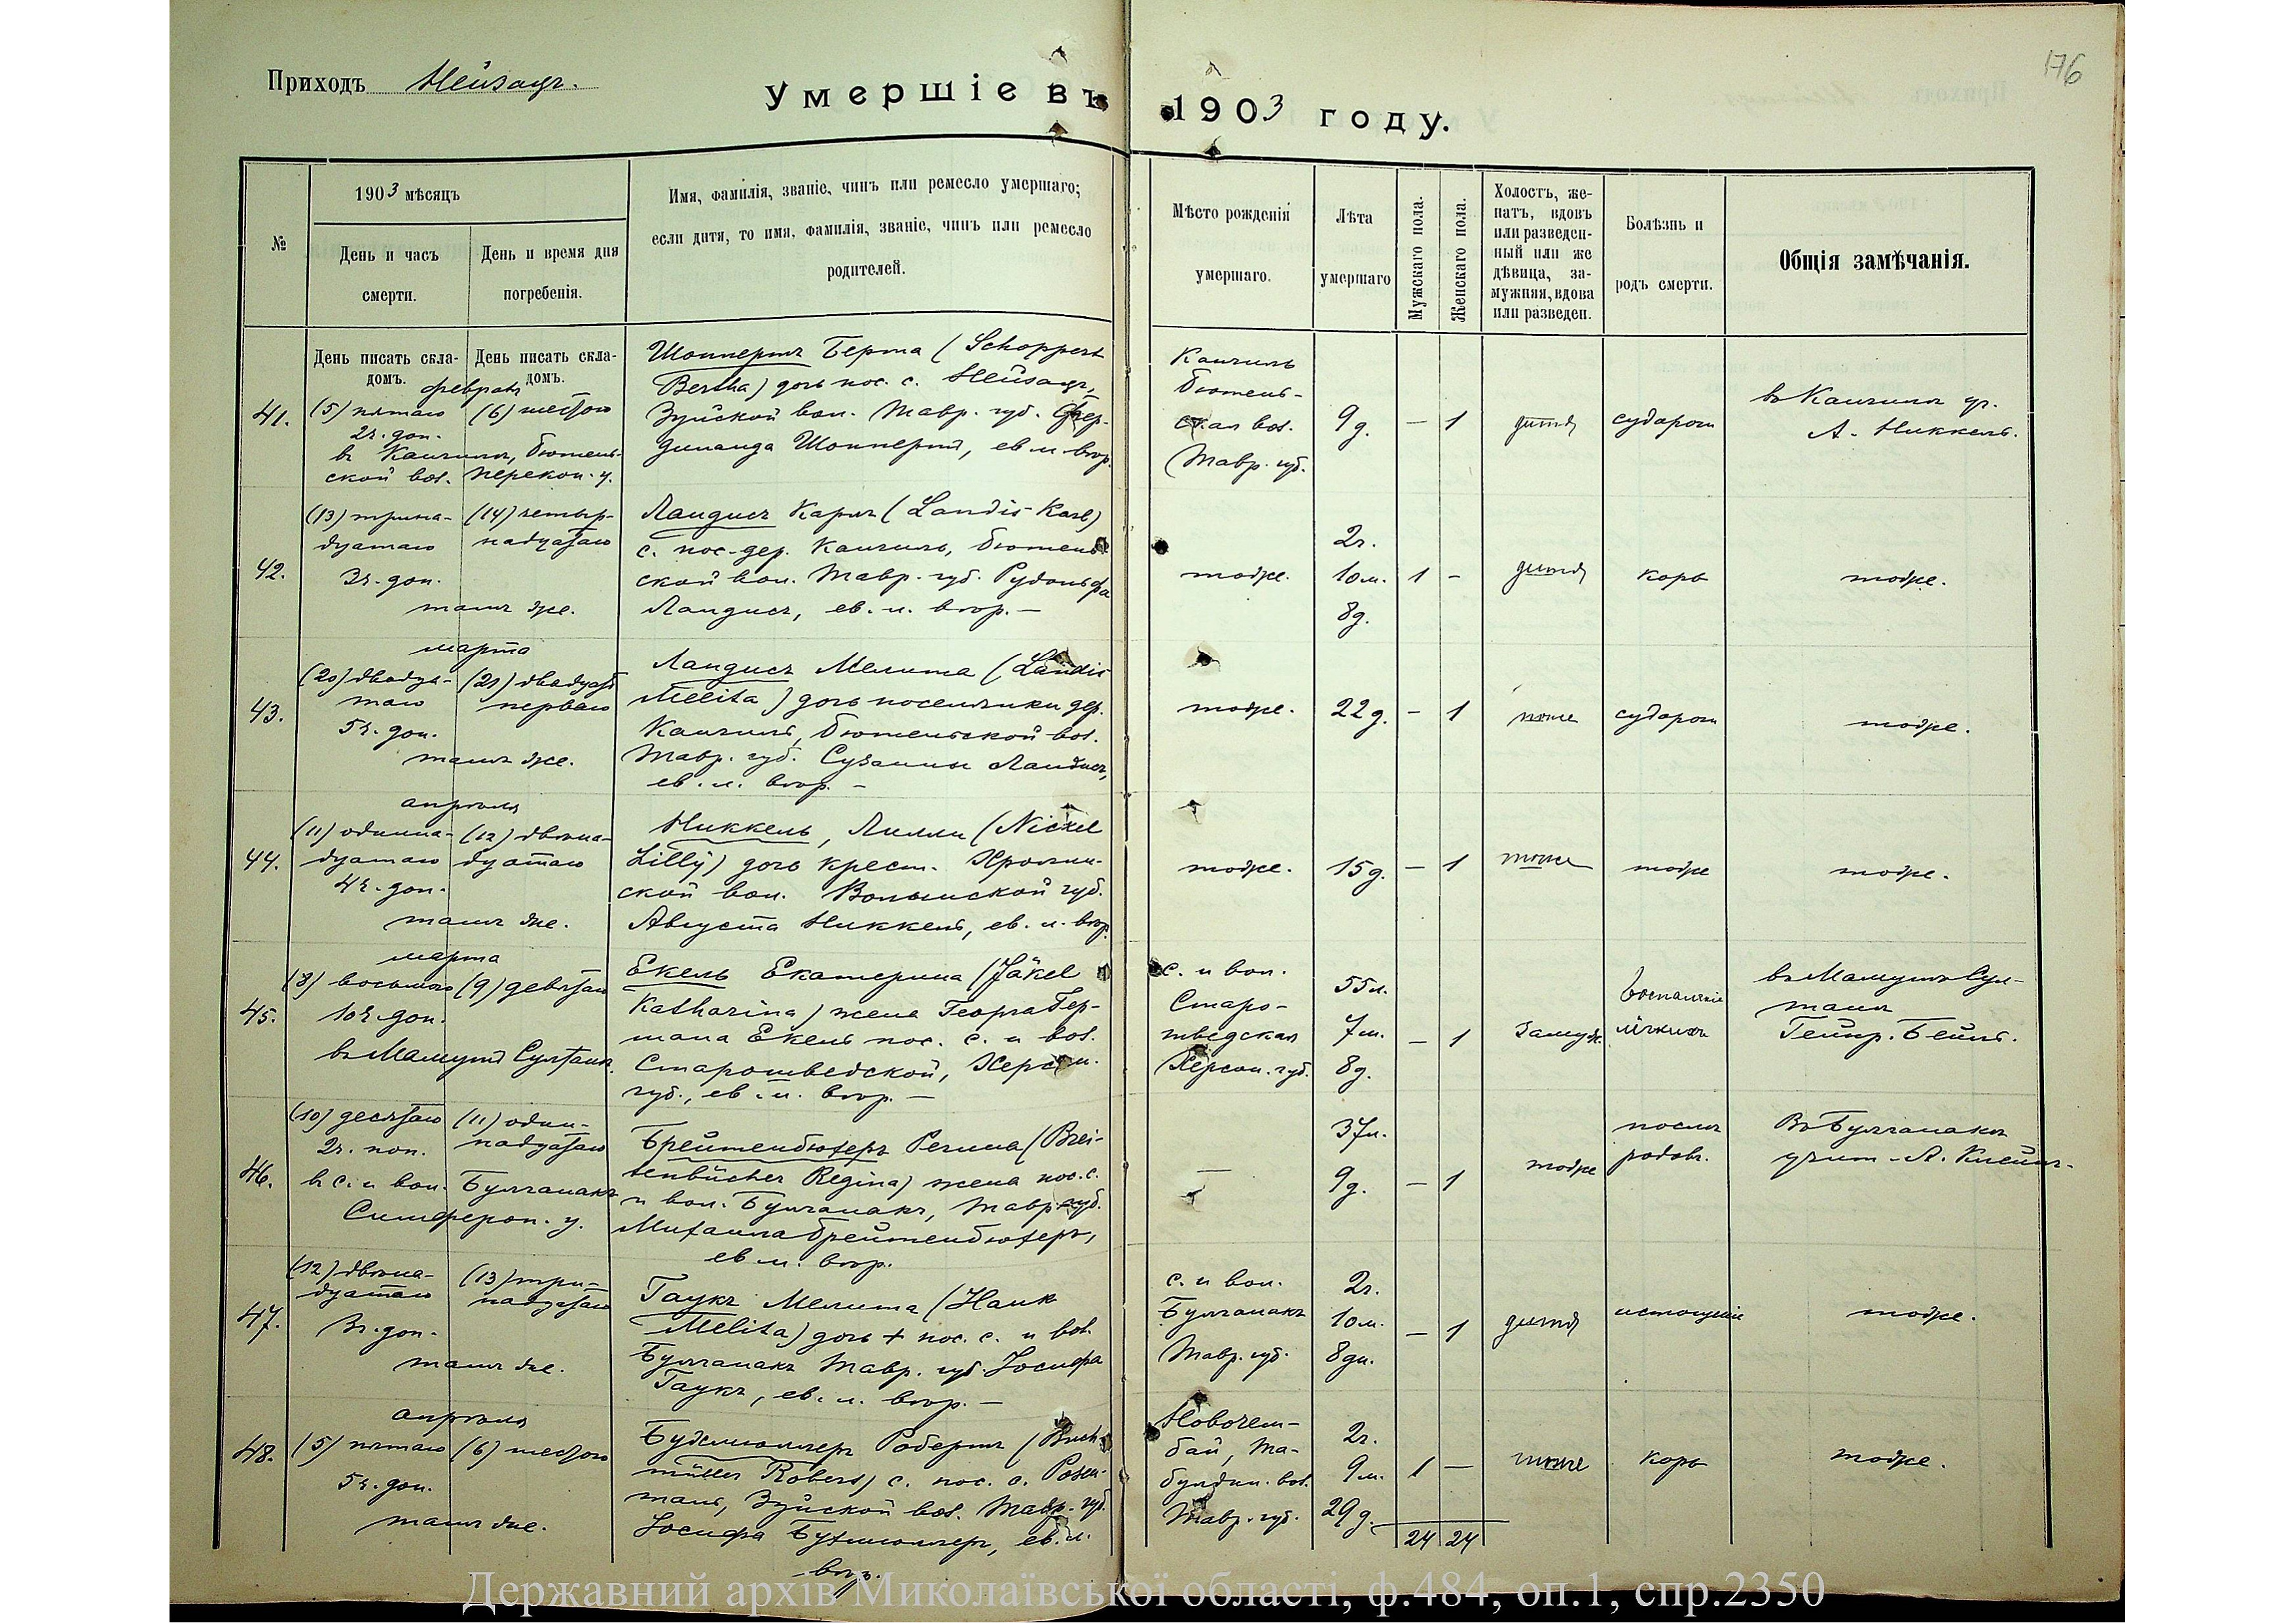 176
Приходъ Нейзацъ.
Умершіе въ 1903 году.
№
1903 мѣсяцъ
День и часъ
смерти.
День и время дня
погребенія.
Имя, фамилія, званіе, чинъ или ремесло умершаго;
если дитя, то имя, фамилія, званіе, чинъ или ремесло
родителей.
Мѣсто рожденія
умершаго.
Лѣта
умершаго
Мужскаго пола.
Женскаго пола.
Холостъ, же-
натъ, вдовъ
или разведен-
ный или же
дѣвица, за-
мужняя, вдова
или разведен.
Болѣзнь и
родъ смерти.
Общія замѣчанія.
День писать скла-
домъ.
День писать скла-
домъ.
февраля
41.
(5) пятаго
2ч. доп.
(6) шестого
въ Кангилъ, Бютень-
ской вол. Перекоп. у.
Шоппертъ Берта (Schoppert
Bertha) дочь пос. с. Нейзацъ,
Зуйской вол. Тавр. губ. Фер-
динанда Шоппертъ, ев. л. вѣр.
Кангилъ
Бютень-
ская вол.
Тавр. губ.
9д.
— 1
дитя
судороги
въ Кангилъ
А. Никкель.
42.
(13) трина-
дцатаго
3ч. доп.
(14) четыр-
надцатаго
тамъ же.
Ландисъ Карлъ (Landis Karl)
с. пос. дер. Кангилъ, Бютень-
ской вол. Тавр. губ. Рудольфа
Ландисъ, ев. л. вѣр. —
тоже.
2г.
10м.
8д.
1 —
дитя
корь
тоже.
марта
43.
(20) двадца-
таго
5ч. доп.
(21) двадцать
перваго
тамъ же.
Ландисъ Мелита (Landis
Melita) дочь поселянки дер.
Кангилъ, Бютеньской вол.
Тавр. губ. Сузанны Ландисъ,
ев. л. вѣр. —
тоже.
22д.
— 1
тоже
судороги
тоже.
апрѣля
44.
(11) одинна-
дцатаго
4ч. доп.
(12) двѣна-
дцатаго
тамъ же.
Никкель, Лилли (Nickel
Lilly) дочь крест.
ской вол. Волынской губ.
Августа Никкель, ев. л. вѣр.
тоже.
15д.
— 1
тоже
тоже
тоже.
марта
45.
(8) восьмого
10ч. доп.
(9) девятаго
въ Мамутъ Султанъ.
Екель Екатерина (Jäkel
Katharina) жена Георга Гер-
мана Екель пос. с. и вол.
Старошведской, Херсон.
губ., ев. л. вѣр. —
с. и вол.
Старо-
шведская
Херсон. губ.
55л.
7м.
8д.
— 1
Замуж.
воспаленіе
легкихъ
въ Мамутъ Сул-
танъ
Гейнр. Бейль.
46.
(10) десятаго
2ч. поп.
(11) один-
надцатаго
въ с. и вол. Булганакъ
Симфероп. у.
Брейтенбюхеръ Регина (Brei-
tenbücher Regina) жена пос. с.
и вол. Булганакъ, Тавр. губ.
Михаила Брейтенбюхеръ,
ев. л. вѣр.
—
37л.
9д.
— 1
тоже
послѣ
родовъ.
Въ Булганакъ
учит. А.
47.
(12) двѣна-
дцатаго
3ч. доп.
(13) три-
надцатаго
тамъ же.
Гаукъ Мелита (Hauk
Melita) дочь + пос. с. и вол.
Булганакъ Тавр. губ. Іосифа
Гаукъ, ев. л. вѣр. —
с. и вол.
Булганакъ
Тавр. губ.
2г.
10м.
8дн.
— 1
дитя
истощеніе
тоже.
апрѣля
48.
(5) пятаго
5ч. доп.
(6) шестого
тамъ же.
Бухмюллеръ Робертъ (Buch-
müller Robert) с. пос. с. Розен-
таль, Зуйской вол. Тавр. губ.
Іосифа Бухмюллеръ, ев. л.
вѣр.
бай, Та-
булдин. вол.
Тавр. губ.
2г.
9м.
29д.
1 —
тоже
корь
тоже.
24 24
Державний архів Миколаївської області, ф.484, оп.1, спр.2350